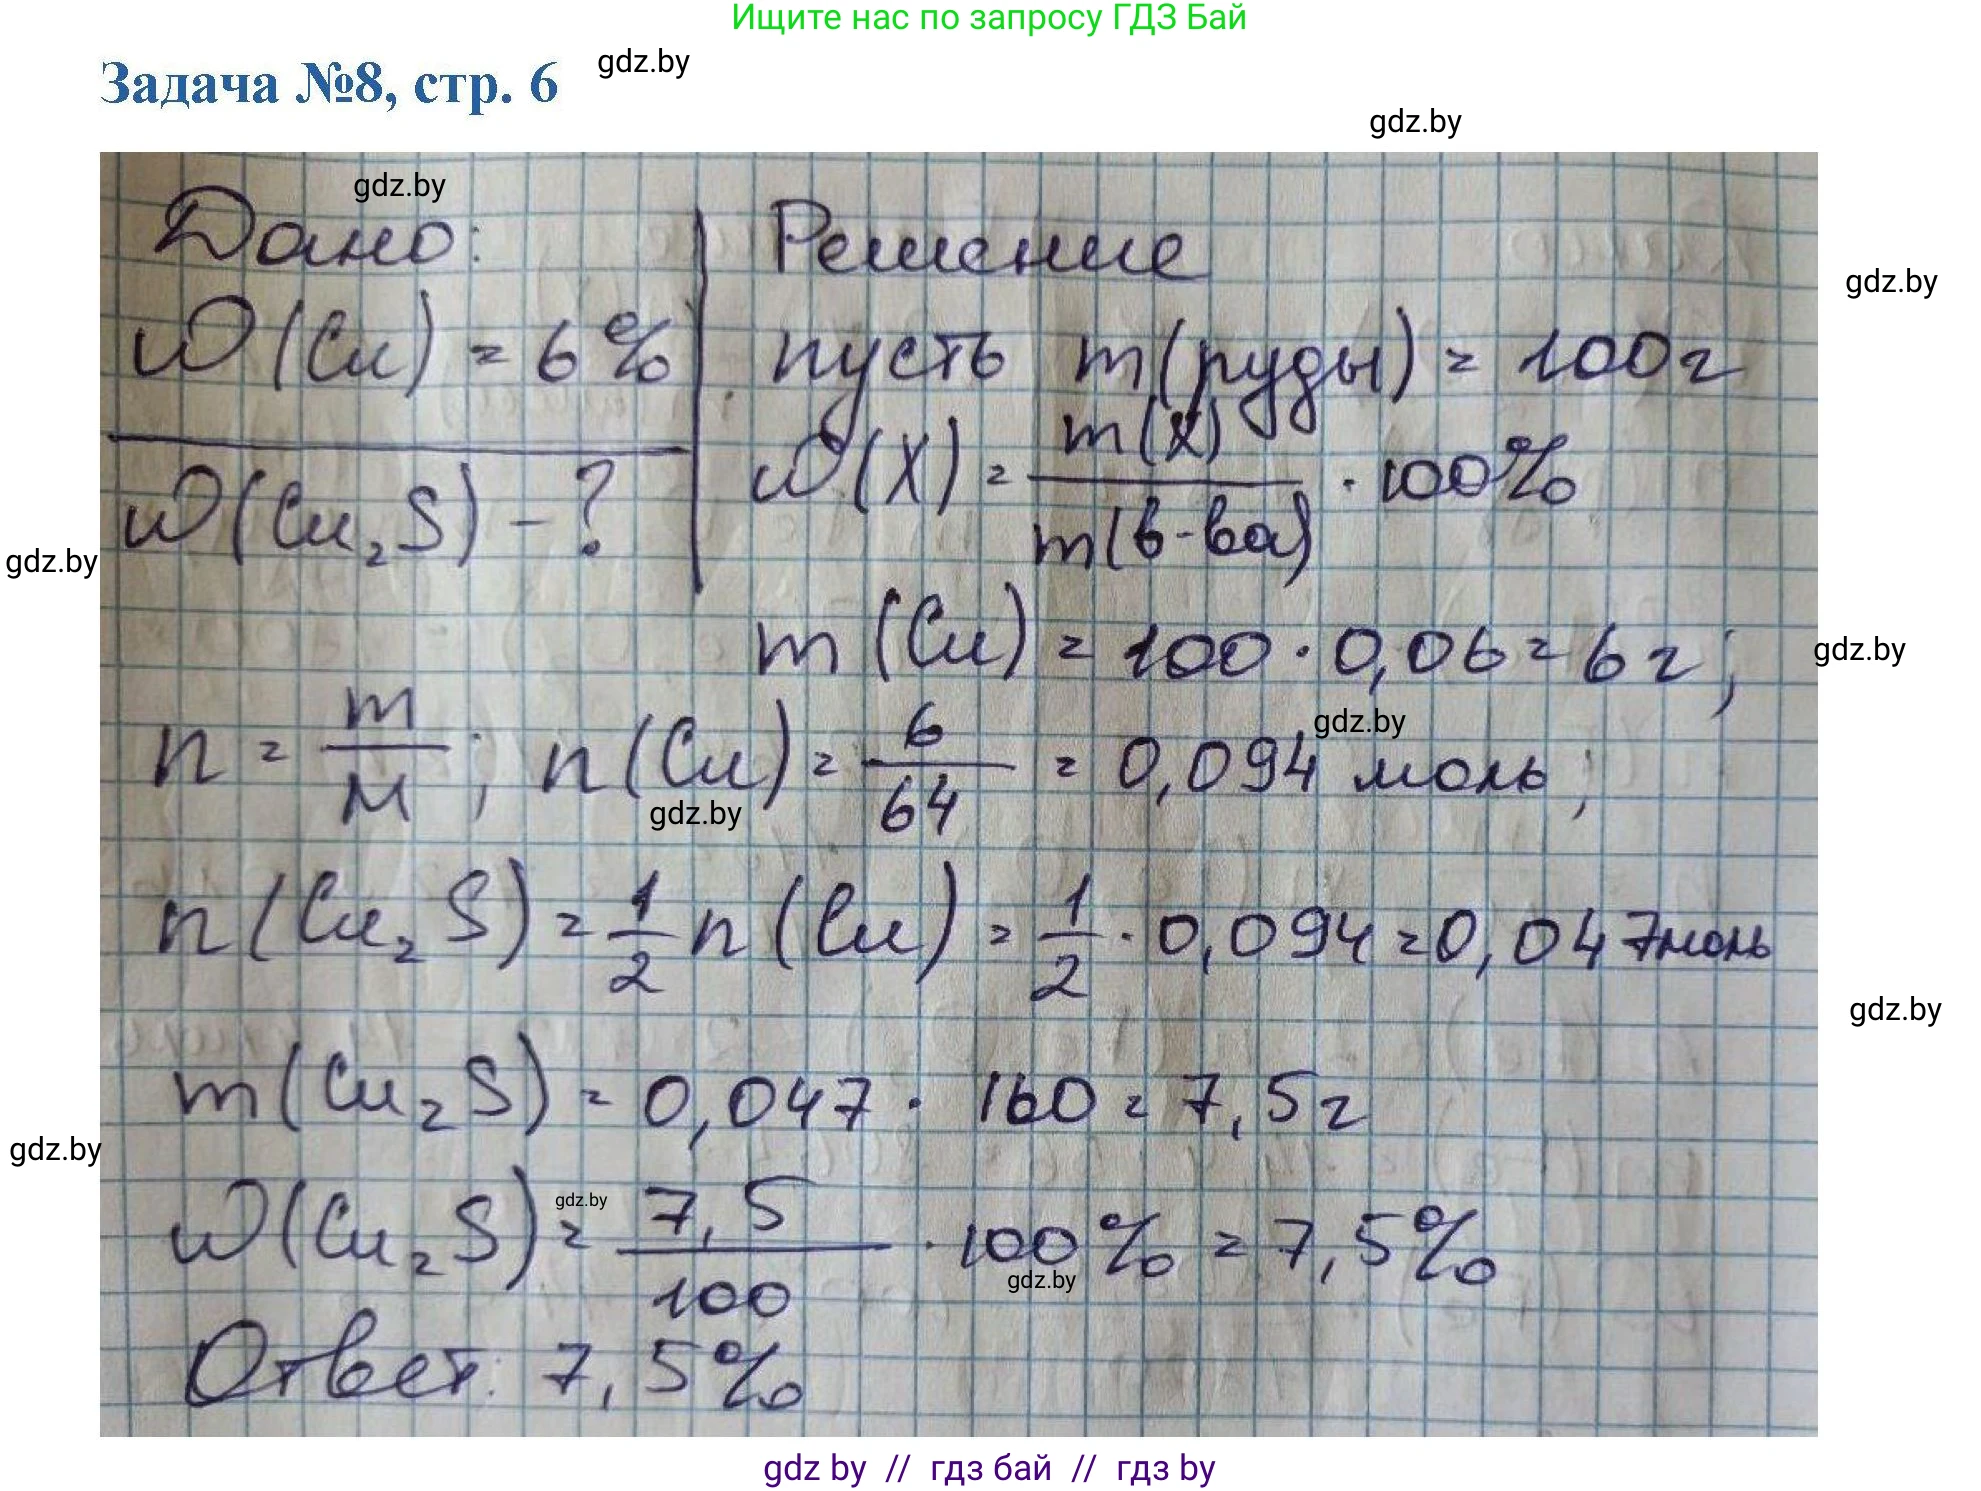 Ищите нас по запросу ГДЗ Бай
Задача №8, стр. 6
gdz.by
gdz.by
gdz.by
Дано:
Решение
gdz.by
W(Cu) = 6%
пусть m(руды) = 100г
W(Cu₂S) - ?
W(X) = m(X) / m(в-ва) · 100%
gdz.by
m(Cu) = 100 · 0,06 = 6г;
gdz.by
gdz.by
n = m/M; n(Cu) = 6/64 = 0,094 моль;
gdz.by
n(Cu₂S) = 1/2 n(Cu) = 1/2 · 0,094 = 0,047моль
gdz.by
m(Cu₂S) = 0,047 · 160 = 7,5г
gdz.by
gdz.by
W(Cu₂S) = 7,5/100 · 100% = 7,5%
gdz.by
Ответ: 7,5%
gdz by // гдз бай // гдз by